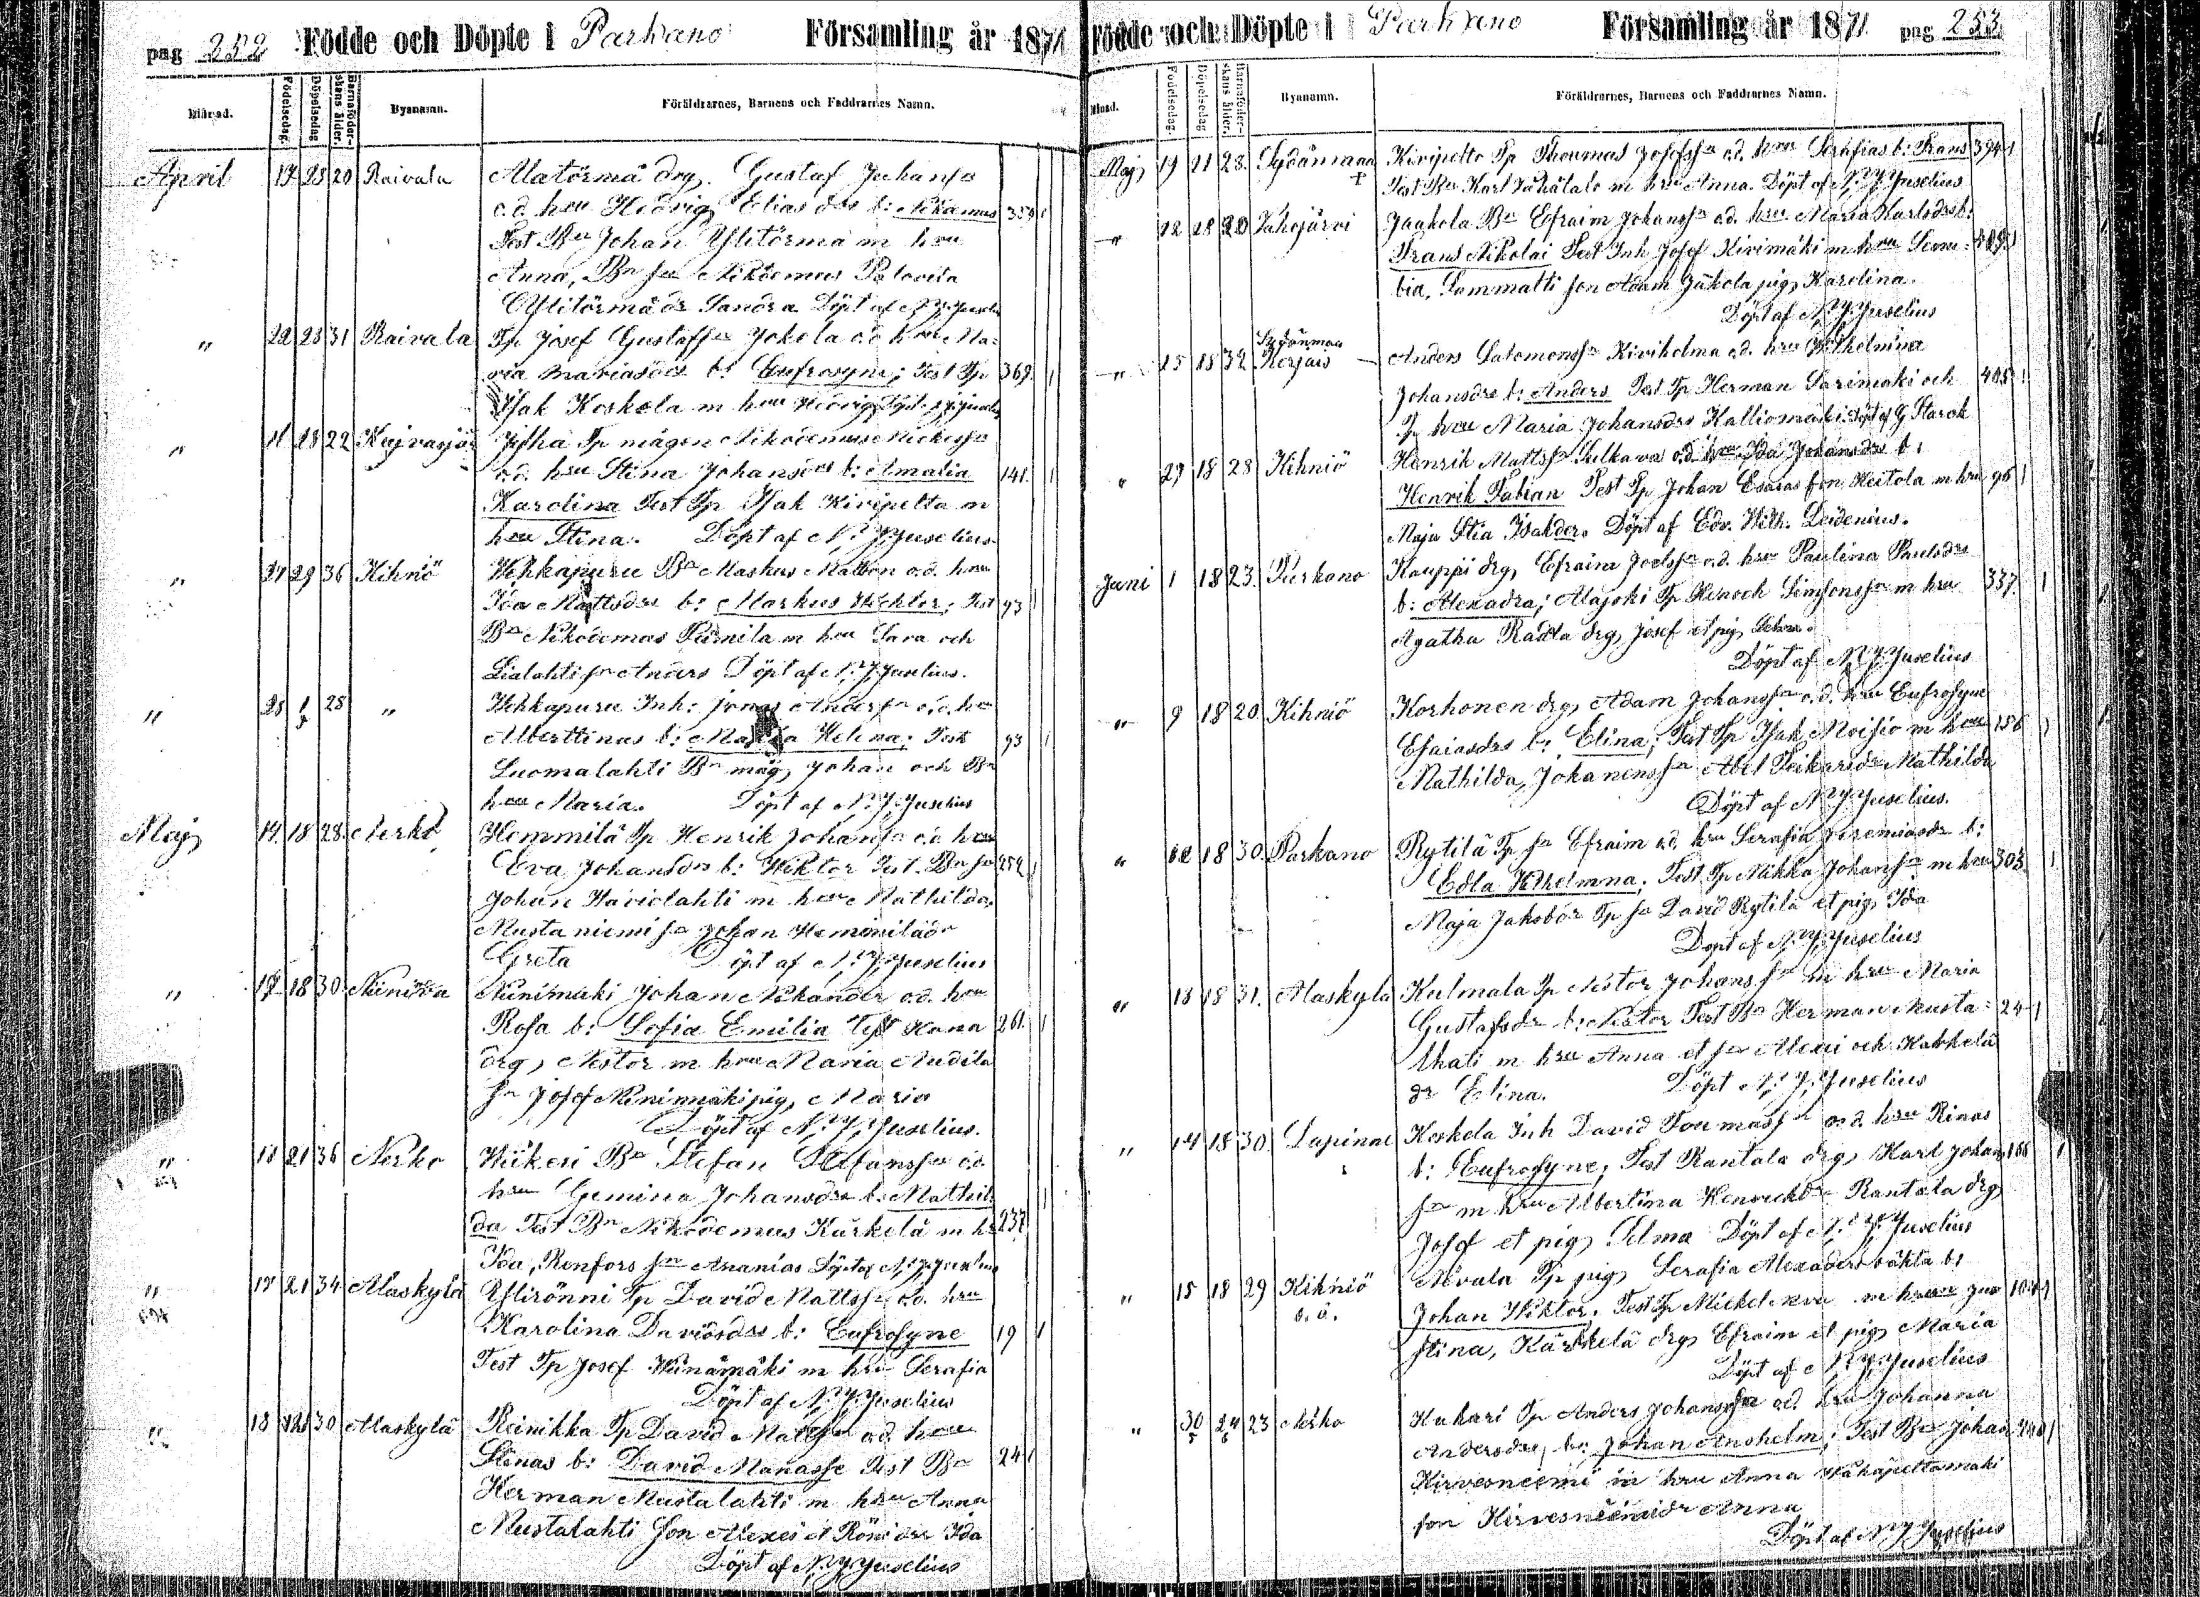 pag 252 Födde och Döpte i Parkano Församling år 1871
Månad. Födelsedag. Döpelsedag Barnaföderskans ålder. Bysnamn. Föräldrarnes, Barnens och Faddrarnes Namn.
April 17 23 20 Raivala Alatörmä drg. Gustaf Juhansn
o.d. hru Hedvig Elias drs b: 359 1
Test Bn Johan Ylitörmä m hru
Anna, Bn sn Nikodemus Palovita
Ylitörmä dr Sandra Döpt af N.J. Juselius
" 22 23 31 Raivala Tp Josef Gustafsn Jokela o.d. hru Ma=
ria Mariasdrs b: Eufrosyne; Test Tp 369. 1
Isak Koskela m hru Hedvig Döpt J. Juselius
" 11 23 22 Tp mågen Nikodemus
o.d. hru Stina Johansdrs b: Amalia 141. 1
Karolina Test Tp Isak Kiripelto m
hru Stina. Döpt af N.J. Juselius
" 27 29 36 Kihniö Wehkapuru Bn Maskus Mattson o.d. hru
Ida Mattsdrs b: Markus Wichtor; Test 93 1
Bn Nikodemus Niemila m hru Sara och
Lialahti sn Anders Döpt af N.J. Juselius.
" 28 1/5 28 " Wehkapuru Inh: Jonas Andersn o.d. hru
Alberttinas b: Maria Helena; Test 93 1
Luomalahti Bn måg Johan och Bn
hru Maria. Döpt af N.J. Juselius
Maj 14. 18 28 Nerko Hemmilä Tp Henrik Johansn o.d. hru
Eva Johansdrs b: Wiktor Test. Bn sn 252 1
Johan Haviolahti m hru Mathilda,
Mustaniemi sn Johan Hemmilä dr
Greta Döpt af N.J. Juselius
" 17 18 30 Niiniskä Niinimäki Johan Nikander o.d. hru
Rosa b: Sofia Emilia Test Kona 261. 1
drg, Nestor m hru Maria Audila
sn Josef Nininmäki pig, Maria
Döpt af N.J. Juselius.
" 18 21 36 Nerko Wiikeri Bn Stefan Stefansson o.d.
hru Gemina Johansdrs b: Mathil=
da Test Bn Nikodemus Kärkelä m hr 237 1
Ida, Renfors sn Ananias Döpt af N.J. Juselius
" 17 21 34 Alaskylä Ylirönni Tp David Mattssn o.d. hru
Karolina Davidsdrs b: Eufrosyne 19 1
Test Tp Josef Wiinämäki m hru Serafia
Döpt af N.J. Juselius
" 18 21 30 Alaskylä Reinikka Tp David Mattsn o.d. hru
Stinas b: David Manasse Test Bn 24 1
Herman Mustalahti m hru Anna
Mustalahti son Alexei & Röni drs Ida
Döpt af N.J. Juselius
Födde och Döpte i Parkano Församling år 1871 pag 253
Månad. Födelsedag. Döpelsedag Barnaföderskans ålder. Bysnamn. Föräldrarnes, Barnens och Faddrarnes Namn.
Maj 19 21 23. Sydänmaa Kiripelto Tp Thoumas Josefssn o.d. hru Serafias b: Frans 394 1
Test Bn Karl m hru Anna. Döpt af N.J. Juselius
" 12 18 20 Vahojärvi Jaakola Bn Efraim Johanssn o.d. hru Maria Karlsdrs b:
Frans Nikolai Test Inh Josef Kivimäki m hru Serna= 1
bia, Lammatti son Adam Jäkola pig, Karolina.
Döpt af N.J. Juselius
" 15 18 32 Sydänmaa Anders Salomonssn Kiviholma o.d. hru Wilhelmina
Johansdrs b: Anders Test Tp Herman Sarimäki och 405 1
Tp hru Maria Johansdrs Kalliomäki. Döpt af G Starck
" 29 18 28 Kihniö Henrik Mattssn Sulkava o.d. hru Ida Johansdrs b:
Henrik Fabian Test Tp Johan Esaias son Heitola m hru 96 1
Maja Stia Isakdrs. Döpt af Edv. Wilh. Leidenius.
Juni 1 18 23. Parkano Kauppi drg, Efraim Joelssn o.d. hru Paulina Paulsdrs
b: Alexadra; Alajoki Tp Henoch Simsonssn m hru 337. 1
Agatha Radla drg, Josef et pig,
Döpt af N.J. Juselius
" 9 18 20. Kihniö Korhonen drg, Adam Johanssn o.d. hru Eufrosyne
Esaiasdrs b: Elina; Test Tp Isak Moisio m hru 156 1
Mathilda, Johanenssn Abel Peikaridr Mathilda
Döpt af N.J. Juselius.
" 12 18 30. Parkano Rytilä Tp sn Efraim o.d. hru Serafia Jeremiasdr b:
Edla Wilhelmina; Test Tp Mikka Johanssn m hru 303. 1
Maja Jakobdr Tp sn David Rytilä et pig, Ida
Döpt af N.J. Juselius
" 13 18 31. Alaskylä Kulmala Tp Nestor Johanssn m hru Maria
Gustafsdr b: Nestor Test Bn Herman Musta= 24 1
lhati m hru Anna et sn Alexi och Karkkelä
dr Elina. Döpt N.J. Juselius
" 14 18 30. Lapinne Koskela Inh David Toumassn o.d. hru Rinas
b: Eufrosyne; Test Rantala drg, Karl Johans 166 1
sn m hru Albertina Henrickdr Rantala drg,
Josef et pig, Selma Döpt af N.J. Juselius
" 15 18 29 Kihniö Nevala Tp pig, Serafia Alexadersdr oäkta b:
o.ä. Johan Wiktor. Test Tp Mickel m hru 104 1
Stina, Kärkkelä drg, Efraim et pig, Maria
Döpt af N.J. Juselius
" 30/5 24/6 23 Nerko Kukari Tp Anders Johanssn o.d. hru Johanna
Andersdrs, b: Johan Ansheim; Test Bn Johan 240 1
Kirvesniemi m hru Anna
son Kirvesniemi dr Anna
Döpt af N.J. Juselius